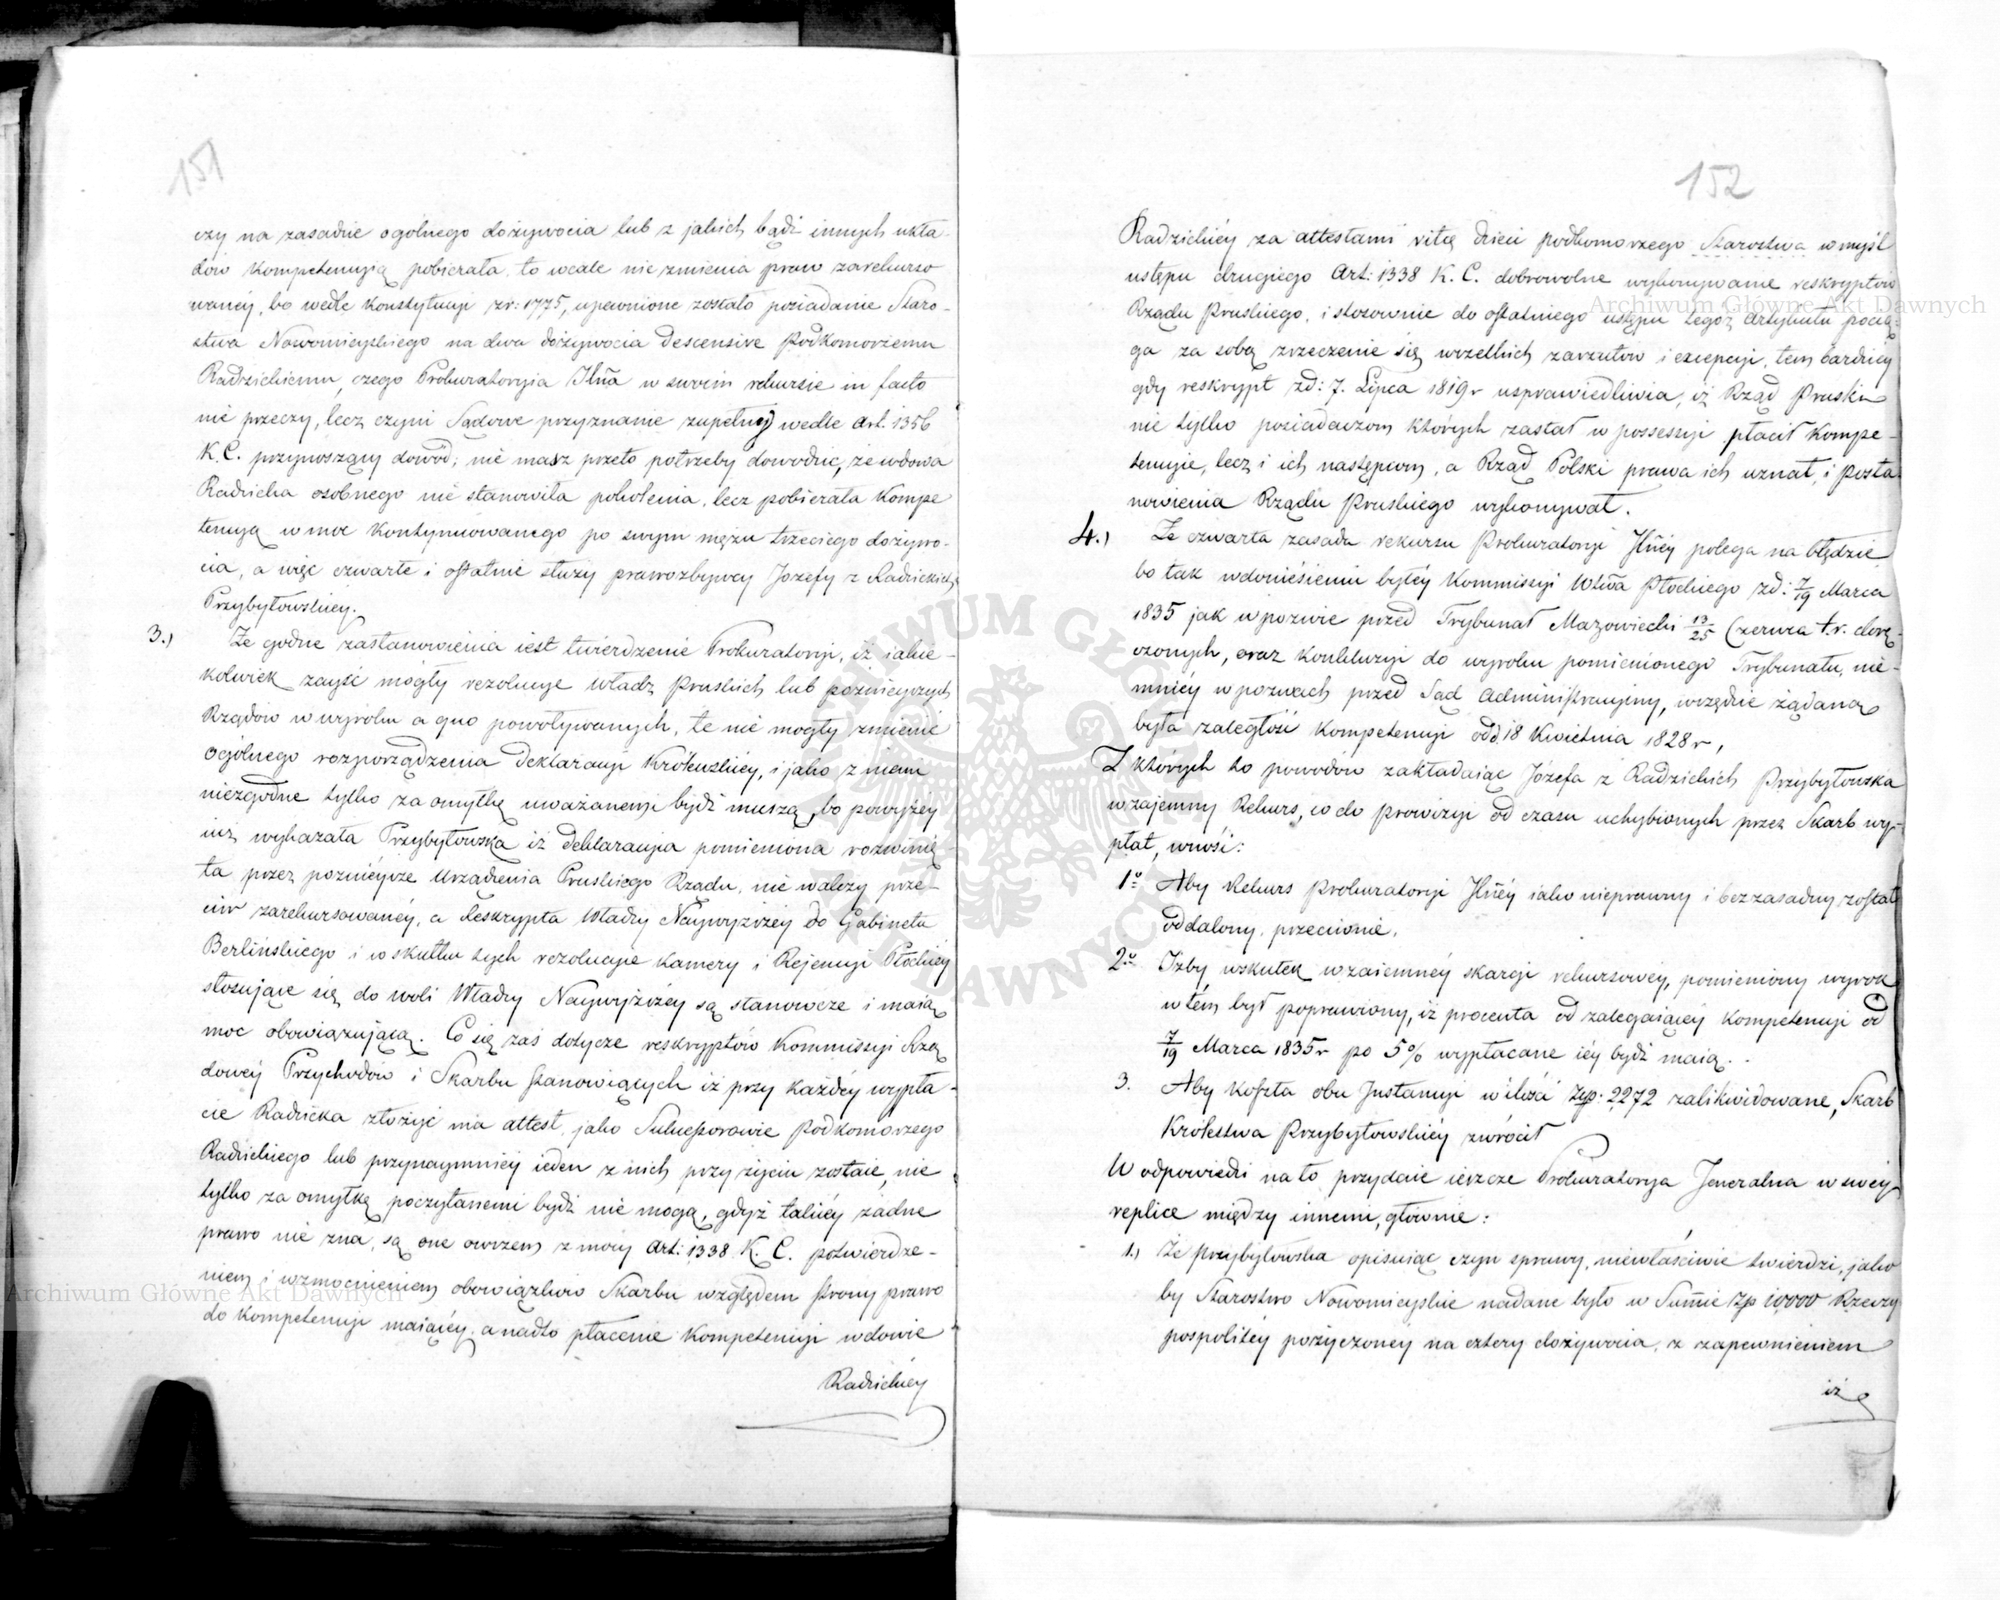 151
czy na zasadzie ogólnego dożywocia lub z jakich bądź innych ukła-
dów kompetencyią pobierała, to wcale nie zmienia praw zarekurso
wanéy, bo wedle Konstytucyi zr: 1775, upewnione zostało posiadanie Staro-
stwa Nowomieyskiego na dwa dożywocia descensive Podkomorzemu
Radzickiemu, czego Prokuratoryia Jlña w swoim rekursie in facto
nie przeczy, lecz czyni Sądowe przyznanie zupełny wedle Art. 1356
K.C. przynoszący dowód; nie masz przeto potrzeby dowodzić, że wdowa
Radzicka osobnego nie stanowiła pokolenia, lecz pobierała Kompe
tencyą w moc kontynuowanego po swym mężu trzeciego dożywo-
cia, a więc czwarte i ostatnie służy prawozbywcy Jozefy z Radzickich
Przybyłowskiey.
3.) Że godne zastanowienia iest twierdzenie Prokuratoryi, iż iakie-
kolwiek zayść mogły rezolucye Władz Pruskich lub pozniejszych
Rządów w wyroku a quo powoływanych, te nie mogły zmienić
ogólnego rozporządzenia Deklaracyi Królewskiey, i jako z niem
niezgodne tylko za omyłkę uważanemi bydź muszą, bo powyżéy
iuż wykazała Przybyłowska iż deklaracyia pomieniona rozwinię-
ta przez poznieysze Urządzenia Pruskiego Rządu, nie walczy prze-
ciw zarekursowanéy, a Reskrypta Władzy Naywyższéy do Gabinetu
Berlińskiego i w skutku tych rezolucyie Kamery i Rejencyi Płockiéy
stosujące się do woli Władzy Naywyższéy są stanowcze i maią
moc obowiązującą. Co się zaś dotycze reskryptów Kommissyi Rzą
dowéy Przychodów i Skarbu stanowiących iż przy każdéy wypła-
cie Radzicka złożyć ma attest, jako Sukcessorowie Podkomorzego
Radzickiego lub przynaymniéy ieden z nich przy życiu zostaie, nie
tylko za omyłkę poczytanemi bydź nie mogą, gdyż takiéy żadne
prawo nie zna, są one owszem z mocy Art: 1338 K. C. potwierdze-
niem i wzmocnieniem obowiązków Skarbu względem strony prawo
do kompetencyi maiącéy, a nadto płacenie Kompetencyi wdowie
Radzickiéy
152
Radzickiéy za attestami vitę dzieci podkomorzego Starostwa w myśl
ustępu drugiego Art: 1338 K. C. dobrowolne wykonywanie reskryptów
Rządu Pruskiego, i stosownie do ostatniego ustępu tegoż Artykułu pocią-
ga za sobą zrzeczenie się wszelkich zarzutów i excepcyi, tem bardziéy
gdy reskrypt zd: 7. Lipca 1819 r usprawiedliwia, iż Rząd Pruski
nie tylko posiadaczom których zastał w possessyi płacił Kompe-
tencyie, lecz i ich następcom, a Rząd Polski prawa ich uznał, i posta
nowienia Rządu Pruskiego wykonywał.
4.) Że czwarta zasada rekursu Prokuratoryi Jlñéy polega na błędzie
bo tak w doniesieniu byłéy Kommissyi Wdztwa Płockiego zd: 7/19 Marca
1835 jak w pozwie przed Trybunał Mazowiecki 13/25 Czerwca t.r. dorę-
czonych, oraz konkluzyi do wyroku pomienionego Trybunału, nie-
mniéy w pozwach przed Sąd Administracyiny, wszędzie żądaną
była zaległość kompetencyi odd. 18 Kwietnia 1828 r,
Z których to powodow zakładaiąc Józefa z Radzickich Przybyłowska
wzajemny Rekurs, co do prowizyi od czasu uchybionych przez Skarb wy-
płat, wnosi:
1º Aby Rekurs Prokuratoryi Jlñéy iako nieprawny i bezzasadny został
oddalony, przeciwnie,
2º Iżby wskutek wzaiemnéy skargi rekursowéy, pomieniony wyrok
w tém był poprawiony, iż procenta od zalegaiącéy kompetencyi od
7/19 Marca 1835 r po 5% wypłacane iéy bydź maią.
3. Aby koszta obu Instancyi w ilości Złp: 2272 zalikwidowane, Skarb
Królestwa Przybyłowskiéy zwrócił
W odpowiedzi na to przydaie ieszcze Prokuratorya Jeneralna w swéy
replice między innemi, głównie:
1.) Że Przybyłowska opisuiąc czyn sprawy, niewłaściwie twierdzi, jako
by Starostwo Nowomieyskie nadane było w Summie złp 10,000 Rzeczy-
pospolitéy pożyczoney na cztery dożywocia, z zapewnieniem
iż
Archiwum Główne Akt Dawnych
Archiwum Główne Akt Dawnych
ARCHIWUM GŁÓWNE AKT DAWNYCH